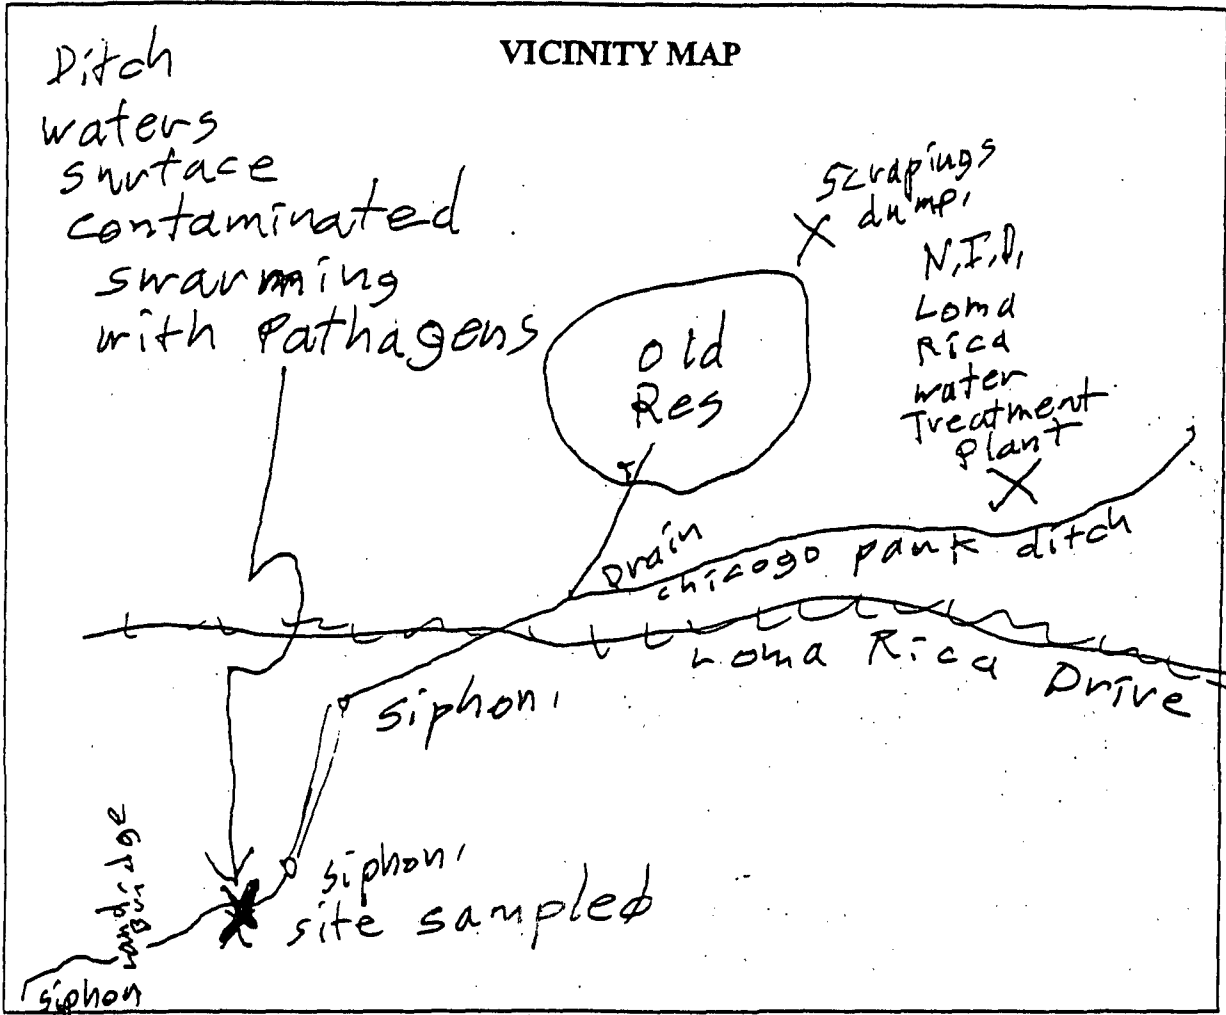 VICINITY MAP
Ditch
waters
surface
contaminated
swarming
with Pathagens
Scrapings
dump.
N.I.D.
Loma
Rica
water
Treatment
Plant
old
Res
Drain
chicogo park ditch
Loma Rica Drive
siphon
siphon
site sampled
siphon